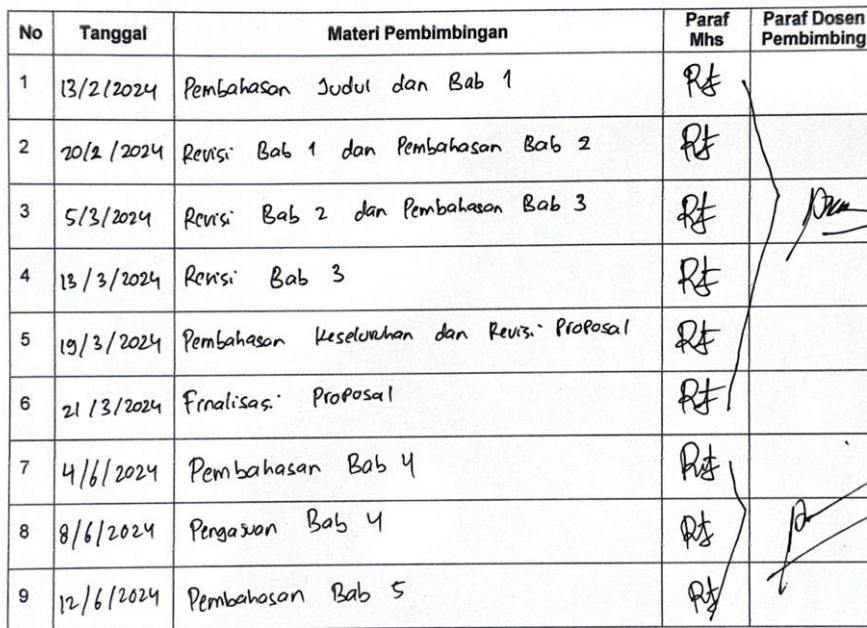 No Tanggal Materi Pembimbingan Paraf Mhs Paraf Dosen Pembimbing
1 13/2/2024 Pembahasan Judul dan Bab 1
2 20/2/2024 Revisi Bab 1 dan Pembahasan Bab 2
3 5/3/2024 Revisi Bab 2 dan Pembahasan Bab 3
4 13/3/2024 Revisi Bab 3
5 19/3/2024 Pembahasan Keseluruhan dan Revisi Proposal
6 21/3/2024 Finalisasi Proposal
7 4/6/2024 Pembahasan Bab 4
8 8/6/2024 Bab 4
9 12/6/2024 Pembahasan Bab 5